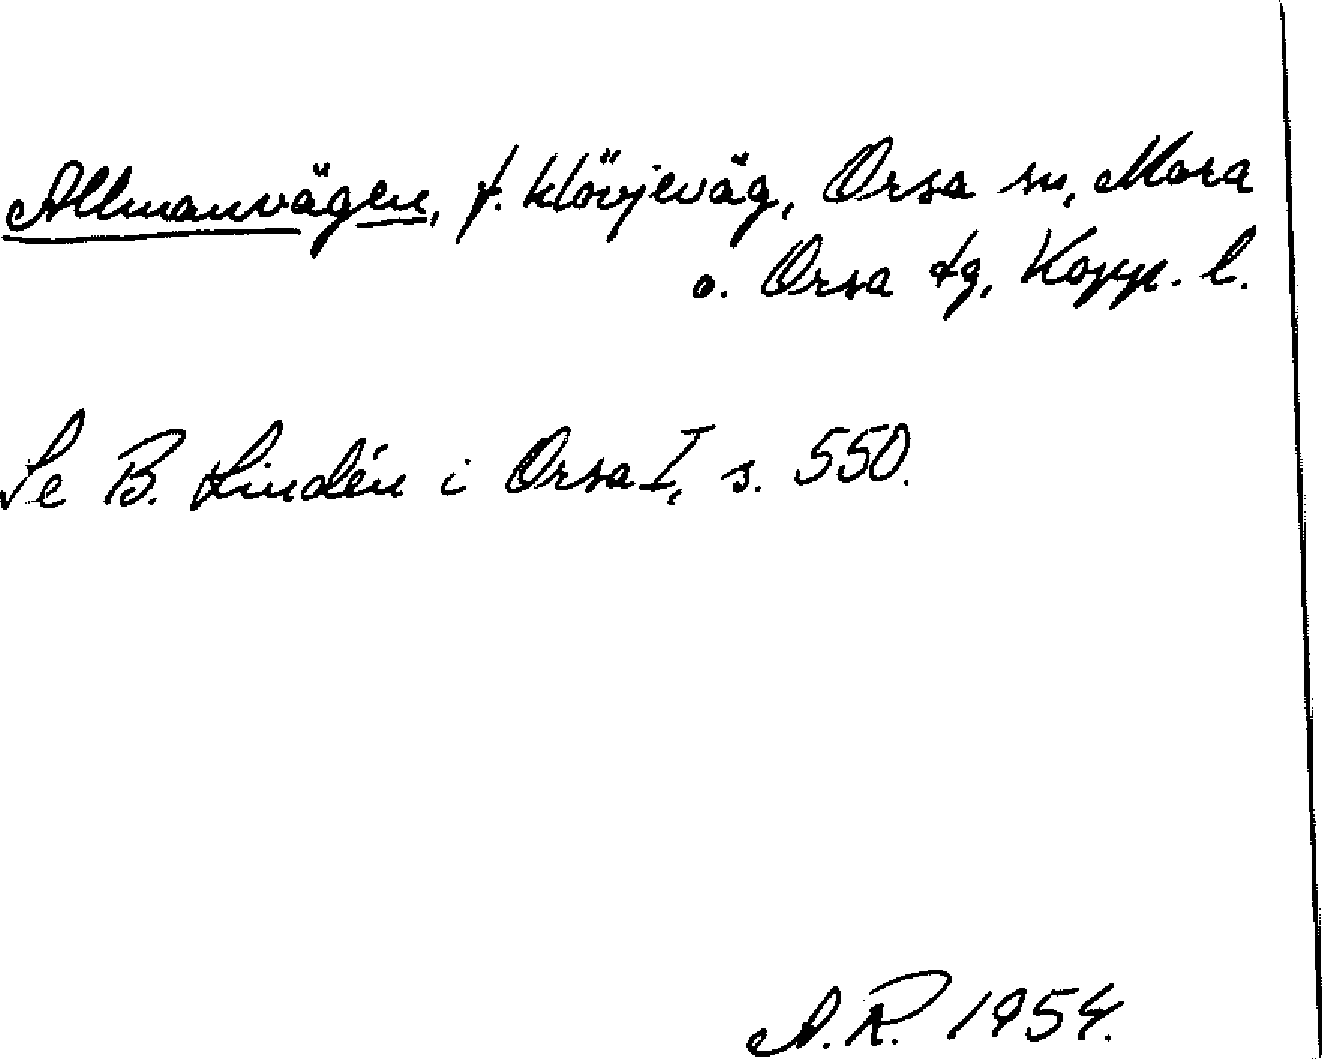 Allmanvägen, f. klövjeväg, Orsa sn, Mora
o. Orsa tg, Kopp. l.
Se B. Lindén i Orsa I, s. 550.
A.R. 1954.